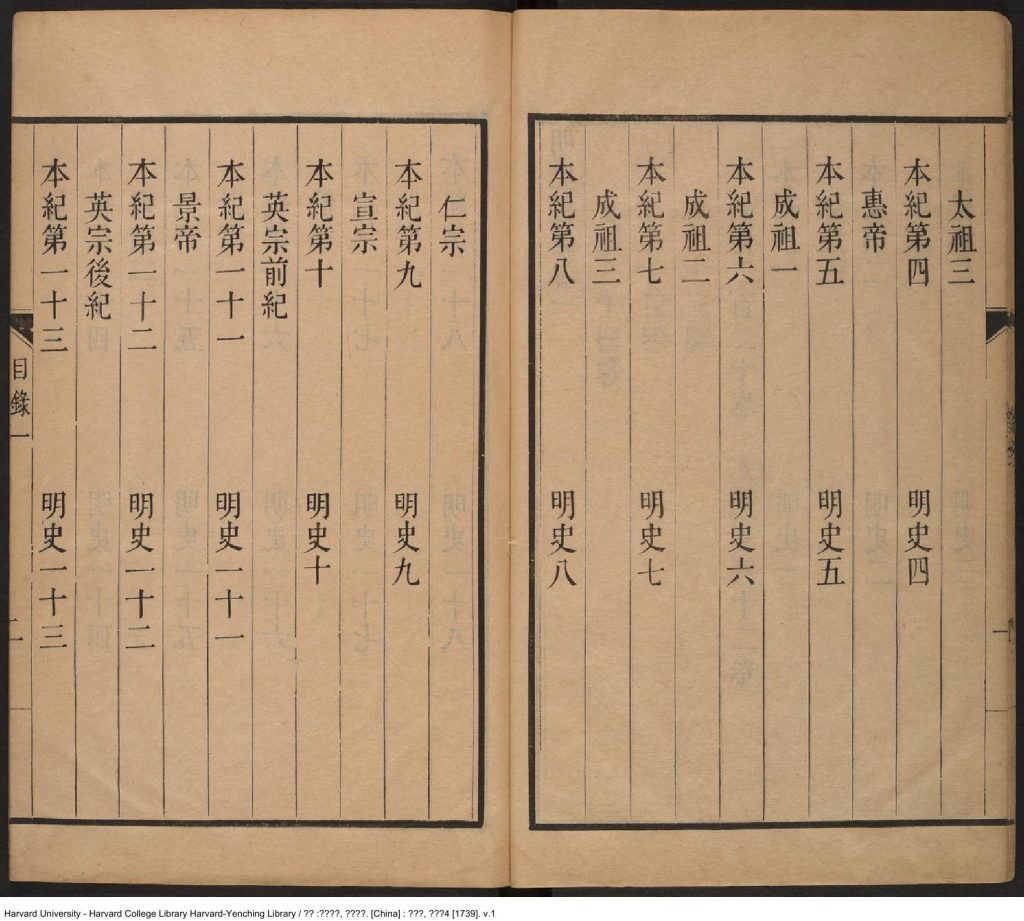 太祖三
本紀第四 明史四
惠帝
本紀第五 明史五
成祖一
本紀第六 明史六
成祖二
本紀第七 明史七
成祖三
本紀第八 明史八
仁宗
本紀第九 明史九
宣宗
本紀第十 明史十
英宗前紀
本紀第一十一 明史一十一
景帝
本紀第一十二 明史一十二
英宗後紀
本紀第一十三 明史一十三
目錄一 二
Harvard University - Harvard College Library Harvard-Yenching Library / ?? :????, ????. [China] : ???, ???4 [1739]. v.1